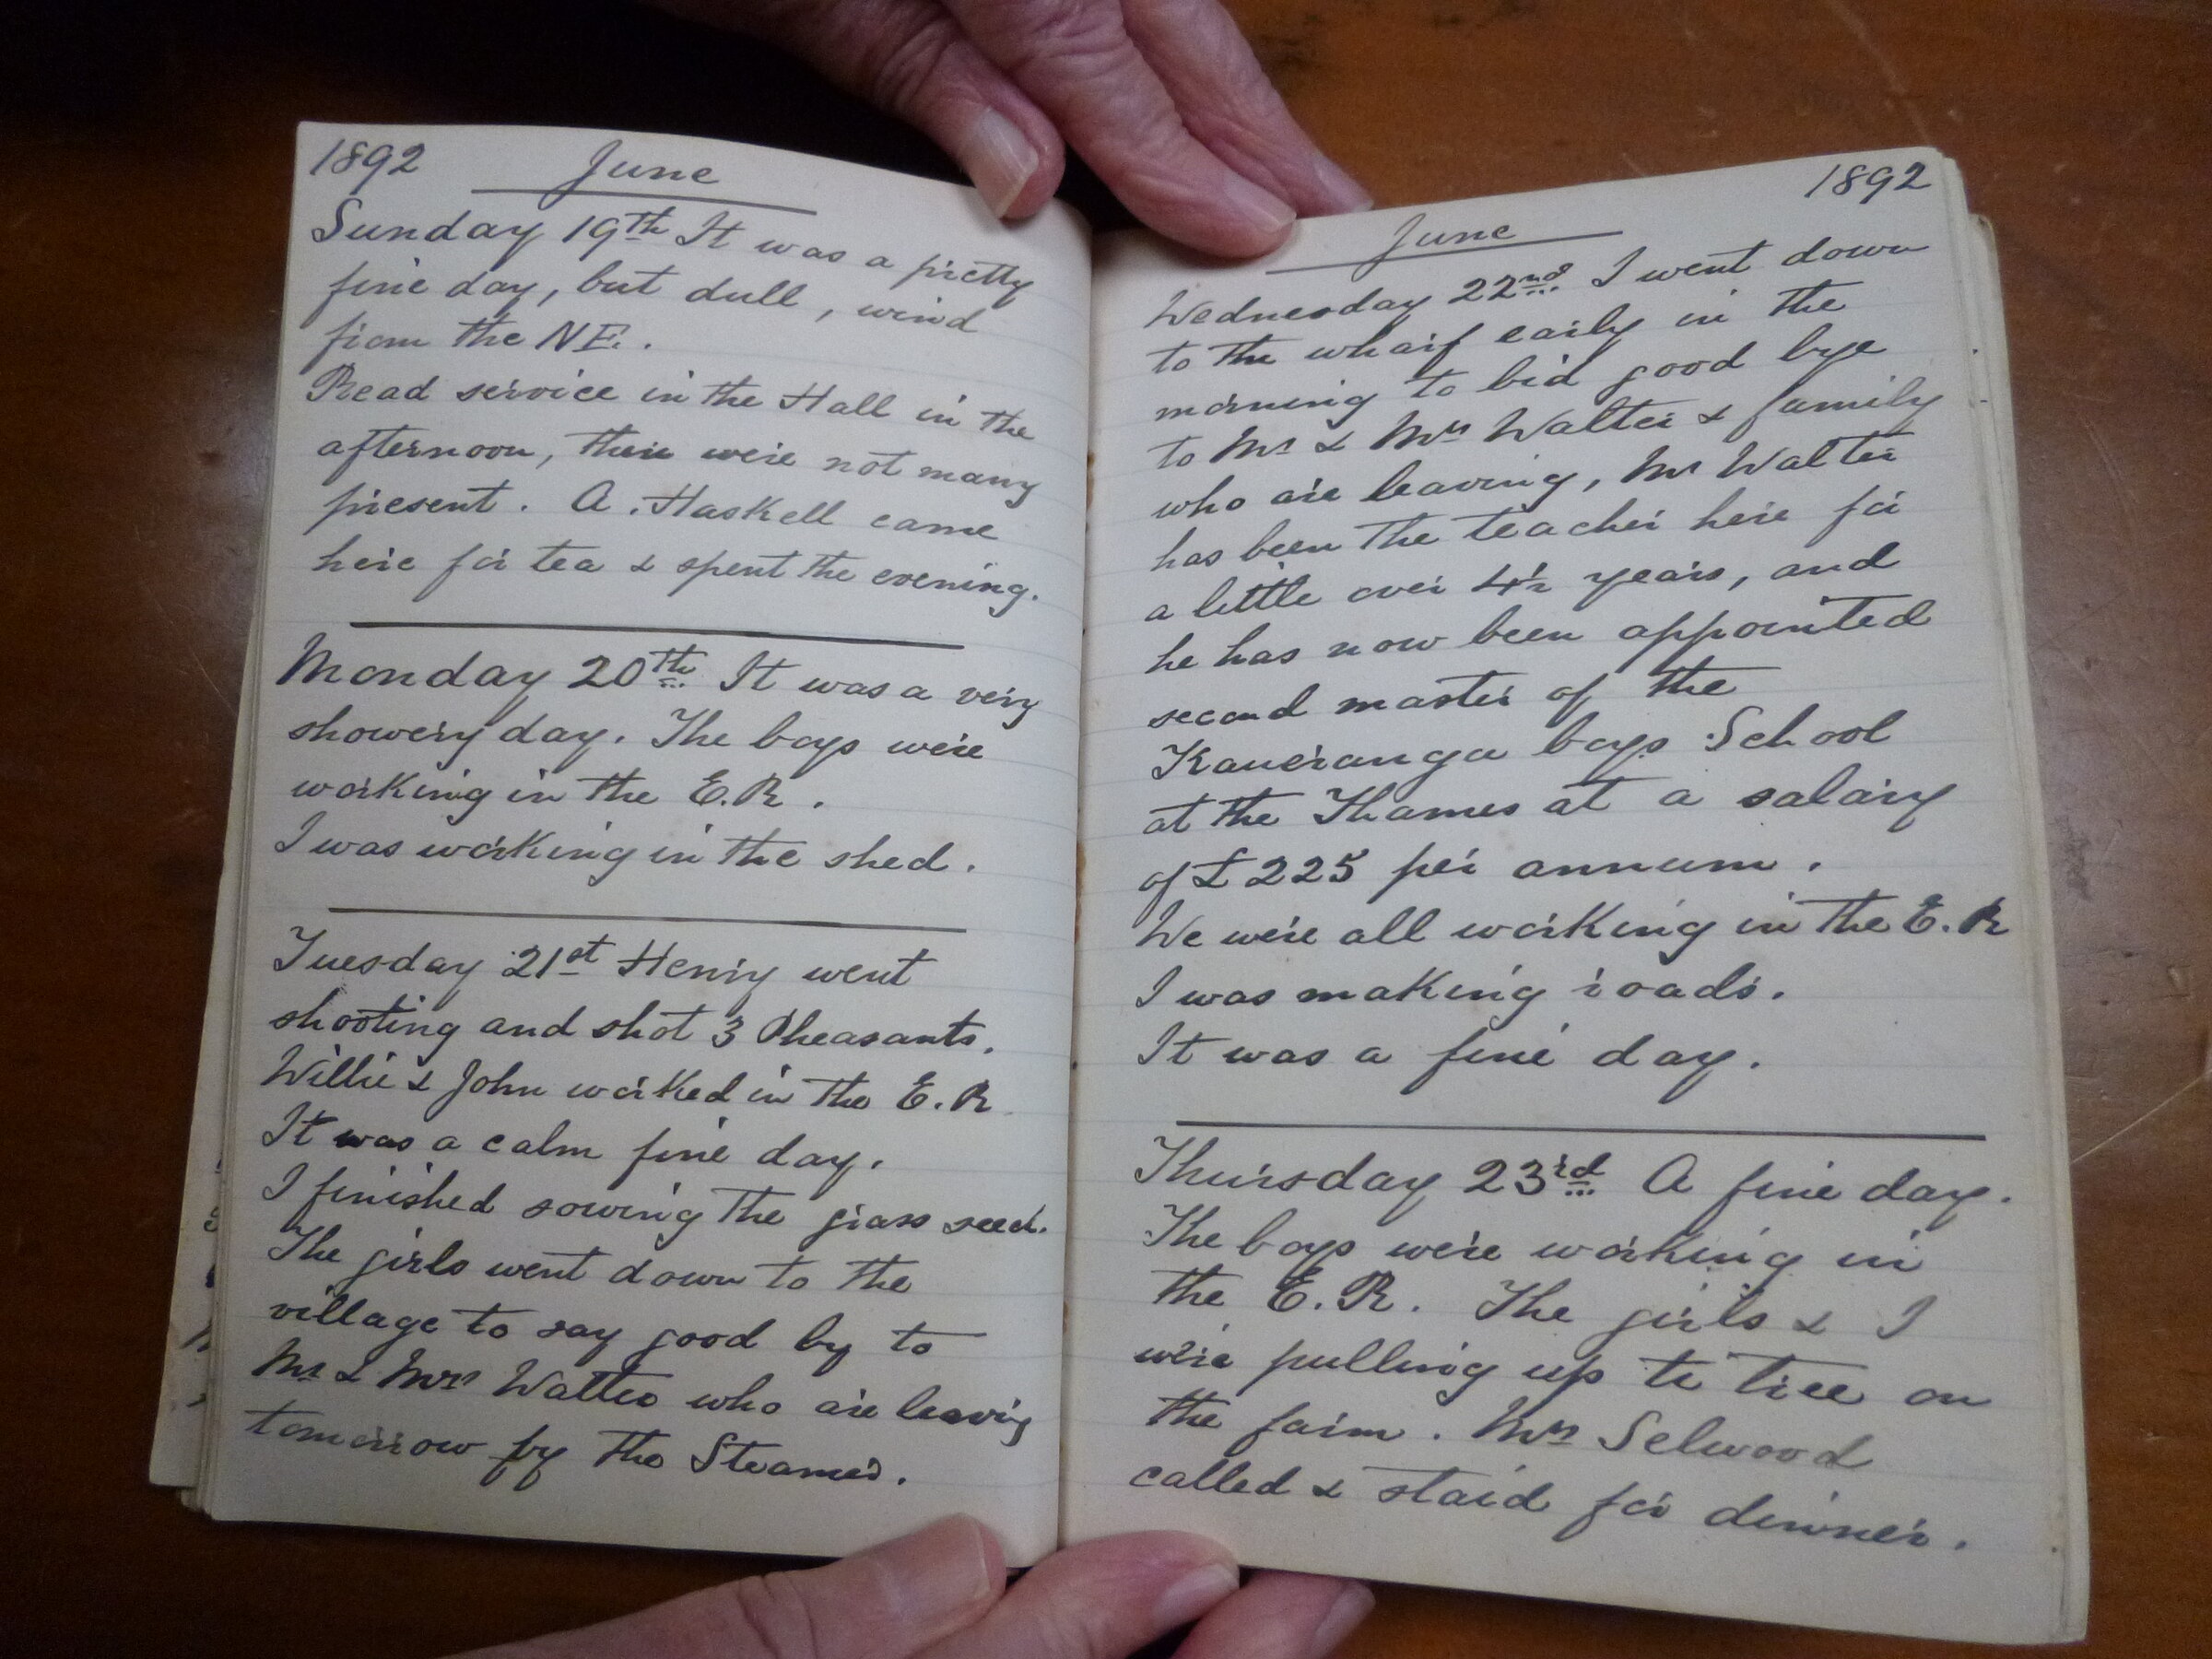 1892 June
Sunday 19th It was a pretty
fine day, but dull, wind
from the NE.
Read service in the Hall in the
afternoon, there were not many
present. A. Haskell came
here for tea & spent the evening.
Monday 20th It was a very
showery day. The boys were
working in the E.R.
I was working in the shed.
Tuesday 21st Henry went
shooting and shot 3 Pheasants.
Willie & John worked in the E.R
It was a calm fine day.
I finished sowing the grass seed.
The girls went down to the
village to say good by to
Mr & Mrs Walter who are leaving
tomorrow by the Steamer.
1892
June
Wednesday 22nd I went down
to the wharf early in the
morning to bid good bye
to Mr & Mrs Walter & family
who are leaving, Mr Walter
has been the teacher here for
a little over 4½ years, and
he has now been appointed
second master of the
Kaueranga boys School
at the Thames at a salary
of £225 per annum.
We were all working in the E.R
I was making roads.
It was a fine day.
Thursday 23rd A fine day.
The boys were working in
the E.R. The girls & I
were pulling up ti tree on
the farm. Mrs Selwood
called & staid for dinner.